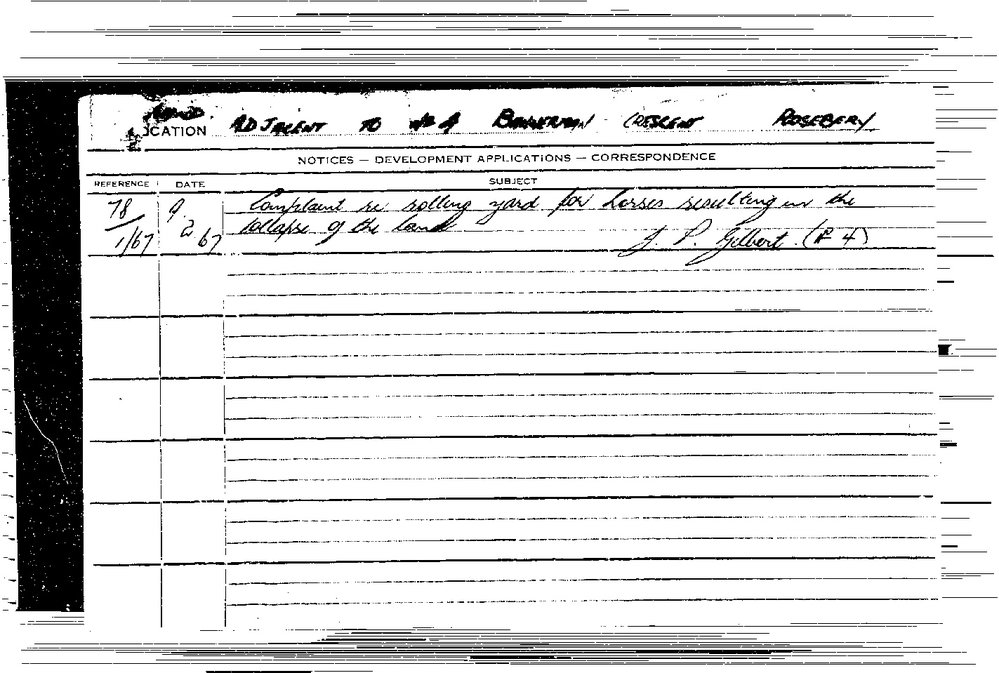 LOCATION ADJACENT TO No 4 BANNERMAN CRESCENT ROSEBERY
NOTICES — DEVELOPMENT APPLICATIONS — CORRESPONDENCE
REFERENCE DATE SUBJECT
78/1/67 9 2 67 Complaint re rolling yard for horses resulting in the
collapse of the land
J. P. Gilbert. (P 4)